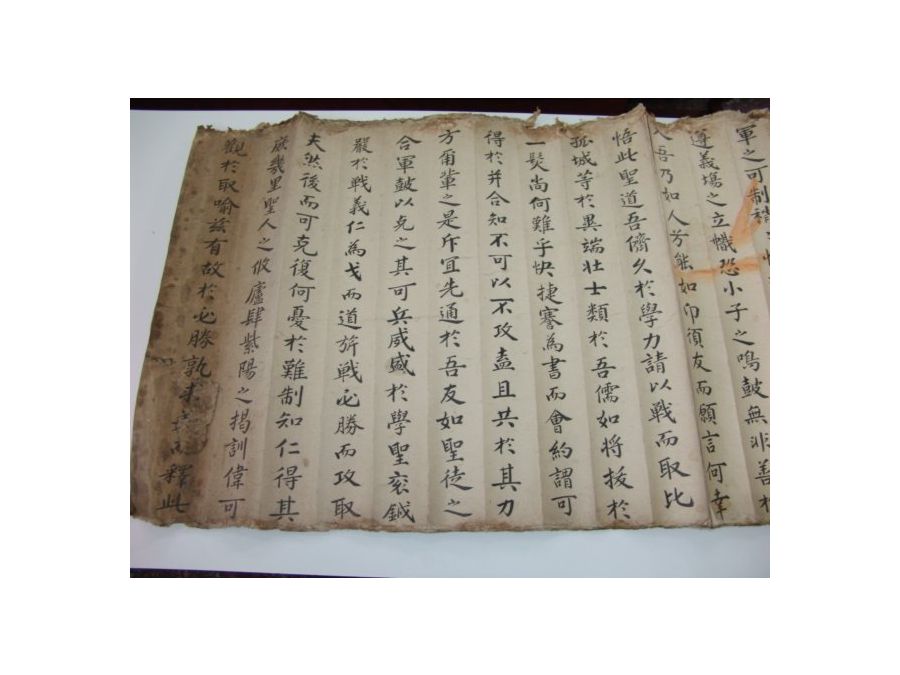 軍之可制
遵義塲之立幟恐小子之鳴鼓無非善
人吾乃如人芳能如卬須友而願言何幸
悟此聖道吾儕久於學力請以戰而取比
孤城等於異端壯士類於吾儒如將拔於
一髮尚何難乎快捷蹇為書而會約謂可
得於并合知不可以不攻盍且共於其力
方甫輩之是斥宜先通於吾友如聖徒之
合軍鼓以克之其可兵威盛於學聖衮鉞
嚴於戰義仁為戈而道旂戰必勝而攻取
夫然後而可克復何憂於難制知仁得其
底幾里聖人之攸廬肆紫陽之揭訓偉可
觀於取喻玆有故於必勝孰未釋此